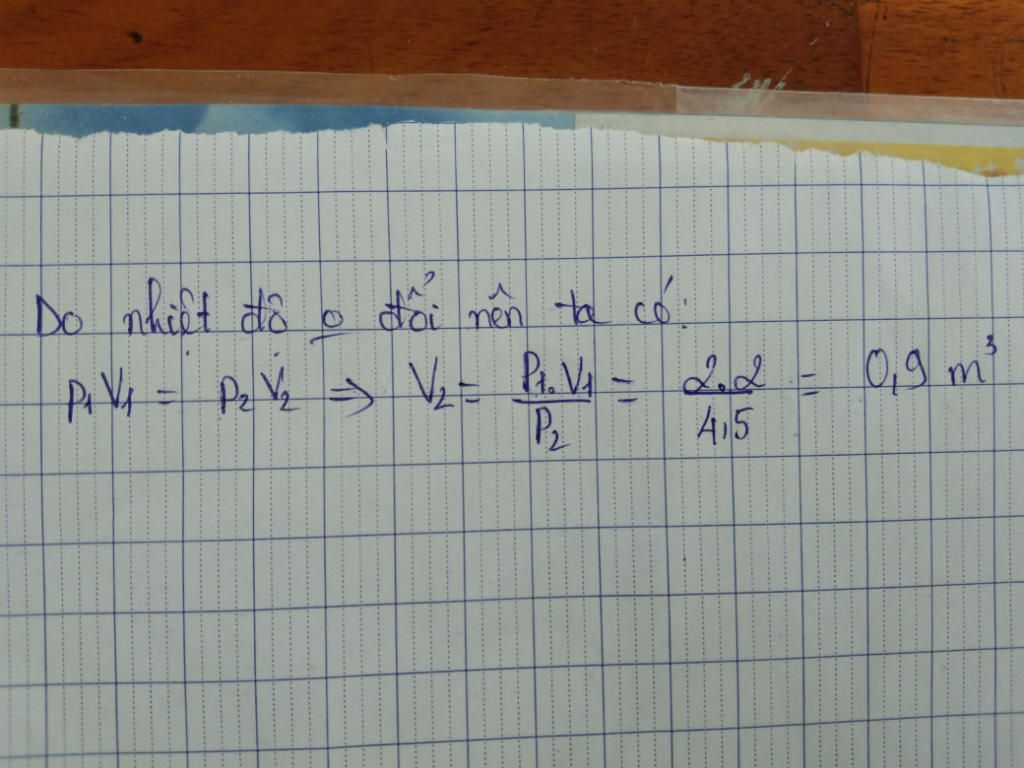 Do nhiệt độ o đổi nên ta có:
P₁V₁ = P₂V₂ => V₂ = P₁.V₁/P₂ = 2.2/4,5 = 0,9 m³